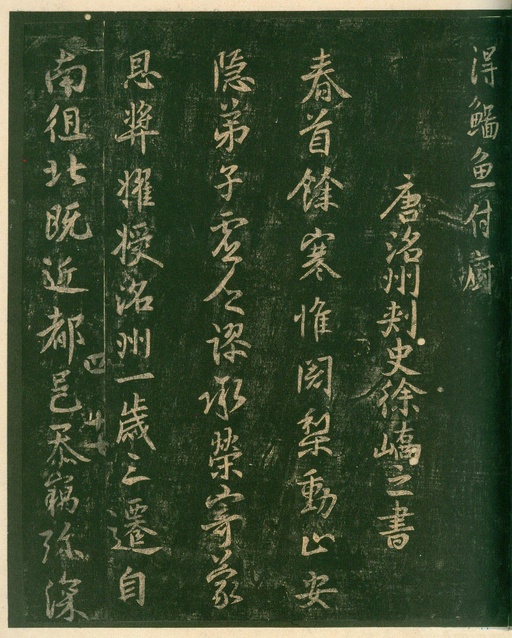 得魚付廚
唐洺州刺史徐嶠之書
春首餘寒惟闍梨動止安
隱弟子虛乏謬承榮寄蒙
恩獎擢授洺州一歲三遷自
南徂北既近都邑忝竊弥深